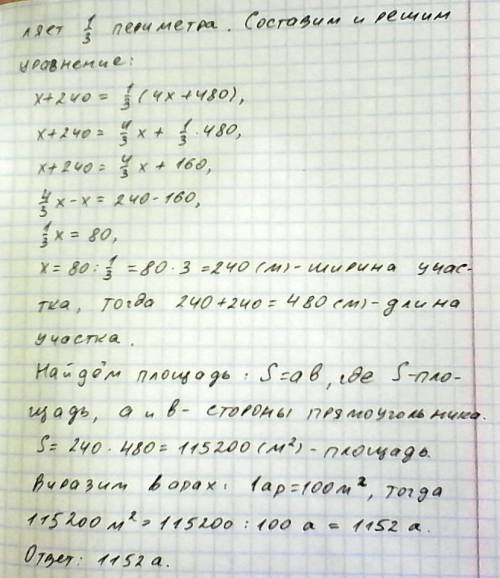 ляет 1/3 периметра. Составим и решим
уравнение:
x+240 = 1/3 (4x+480),
x+240 = 4/3 x + 1/3 · 480,
x+240 = 4/3 x + 160,
4/3 x - x = 240-160,
1/3 x = 80,
x = 80 : 1/3 = 80 · 3 = 240 (м) - ширина учас-
тка, тогда 240+240 = 480 (м) - длина
участка.
Найдём площадь: S=ab, где S-пло-
щадь, a и b - стороны прямоугольника.
S= 240 · 480 = 115200 (м²) - площадь.
Виразим в арах: 1ар=100м², тогда
115200 м² = 115200 : 100 а = 1152 а.
Ответ: 1152 а.